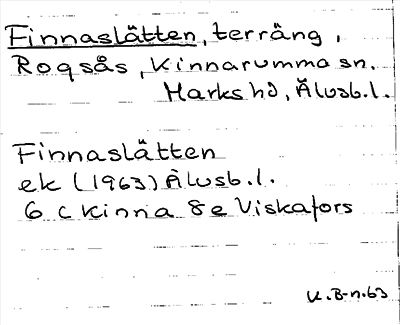 Finnaslätten, terräng,
Rogsås, Kinnarumma sn.
Marks hd, Älvsb.l.
Finnaslätten
ek (1963) Älvsb.l.
6 C Kinna 8e Viskafors
K.B-n.63